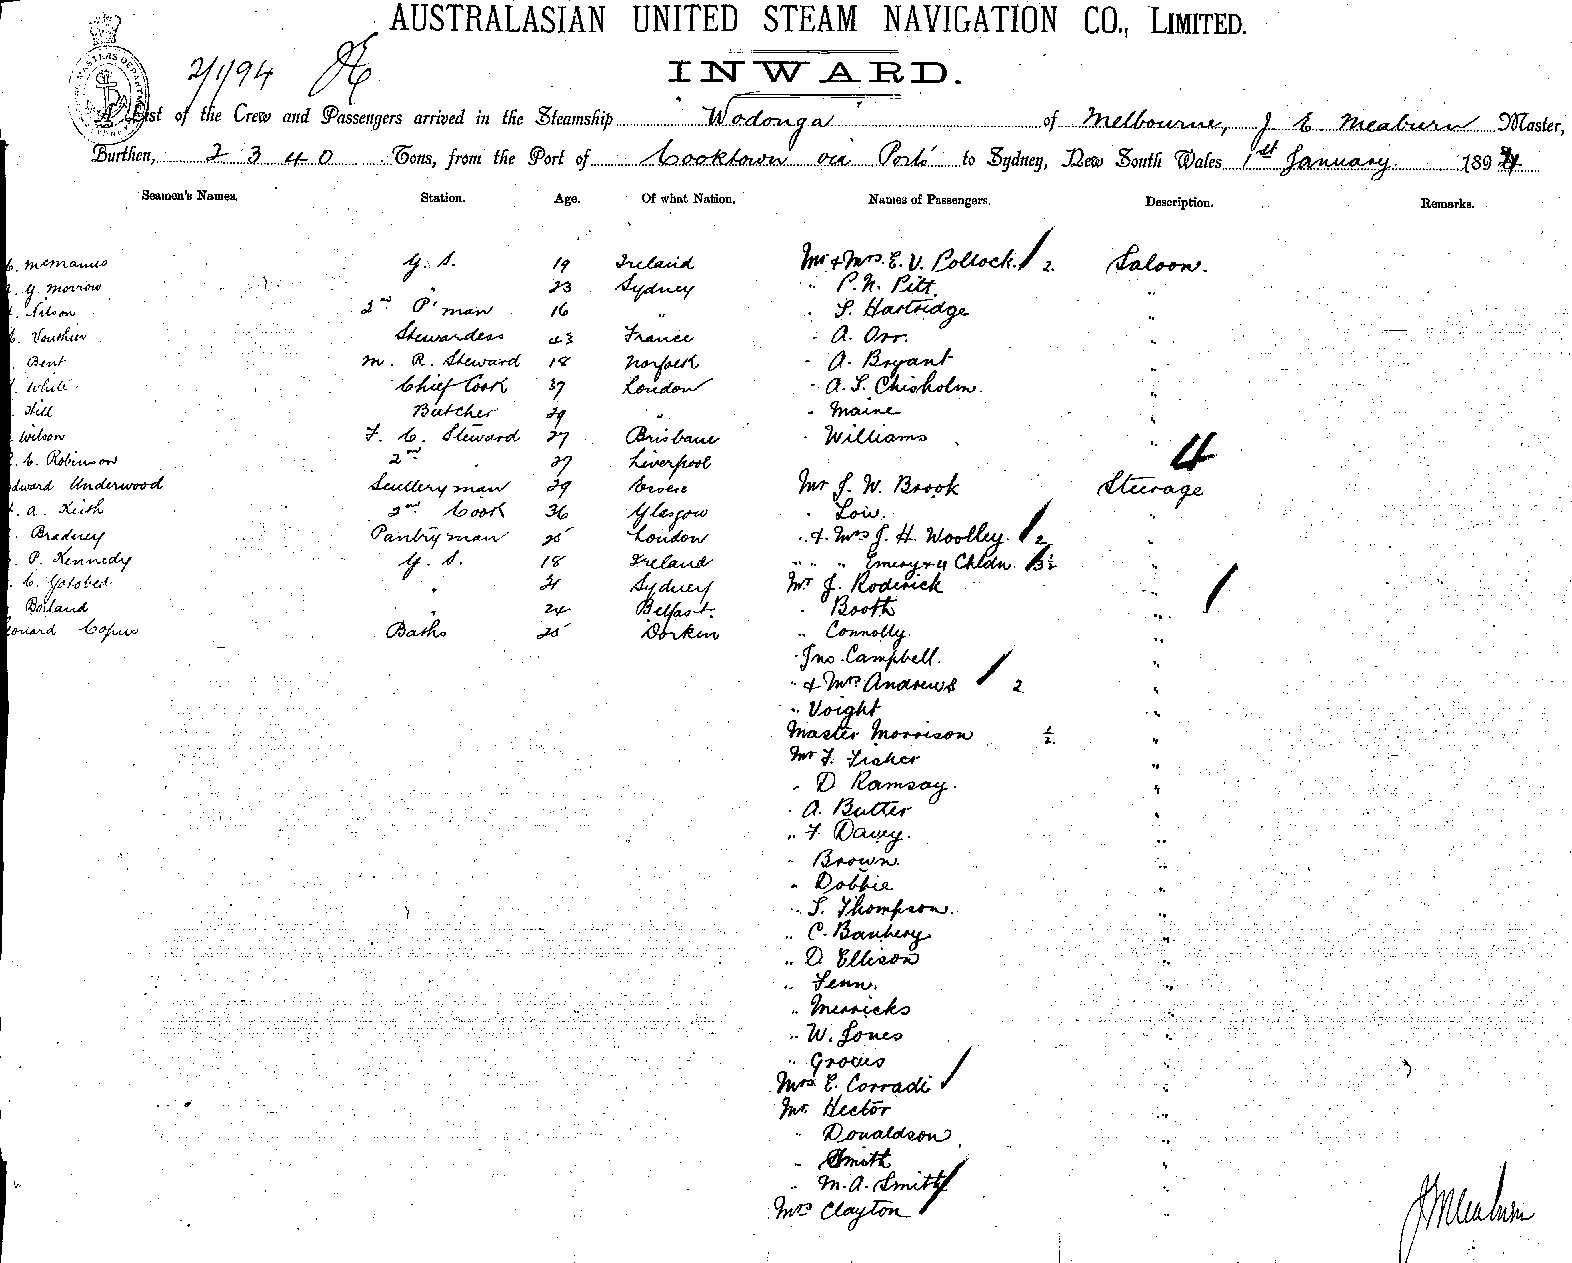 AUSTRALASIAN UNITED STEAM NAVIGATION CO., LIMITED.
2/1/94
INWARD.
A List of the Crew and Passengers arrived in the Steamship Wodonga of Melbourne, J C Meaburn Master,
Burthen, 2340 Tons, from the Port of Cooktown via Ports to Sydney, New South Wales 1st January 1894
Seamen's Names. Station. Age. Of what Nation. Names of Passengers. Description. Remarks.
McManus G. S. 19 Ireland Mr & Mrs. E. V. Pollock. 2. Saloon.
G. Morrow " 23 Sydney " P. N. Pitt "
Nilson 2nd P'man 16 " " S. Hartridge "
Vouthier Stewardess 43 France " A. Orr. "
Bent M. R. Steward 18 Norfolk " A. Bryant "
White Chief Cook 37 London " A. S. Chisholm "
Hill Butcher 29 " " Maine "
Wilson F. C. Steward 27 Brisbane " Williams "
C. Robinson 2nd " 27 Liverpool 4
dward Underwood Scullery man 29 Mr J. W. Brook Steerage
A. Keith 2nd Cook 36 Glasgow " Low. "
Bradney Pantry man 25 London " & Mrs J. H. Woolley. 2 "
P. Kennedy G. S. 18 Ireland " " " Emery & 4 Chldn. "
C. Gotobed " 21 Sydney Mr J. Roderick "
Borland " 24 Belfast. " Booth "
Copus Baths 25 Dorkin " Connolly. "
" Jno. Campbell. "
" & Mrs Andrews 2 "
" Voight "
Master Morrison 1/2 "
Mr F. Fisher "
" D Ramsay. "
" A. Butter "
" F Davey. "
" Brown. "
" Dobbie "
" S. Thompson. "
" C. Banbery "
" D. Ellison "
" Fenn. "
" Merricks "
" W. Jones "
" Groves "
Mrs E. Corradi "
Mr. Hector "
" Donaldson "
" Smith "
" M. A. Smith "
Mrs Clayton "
J C Meaburn